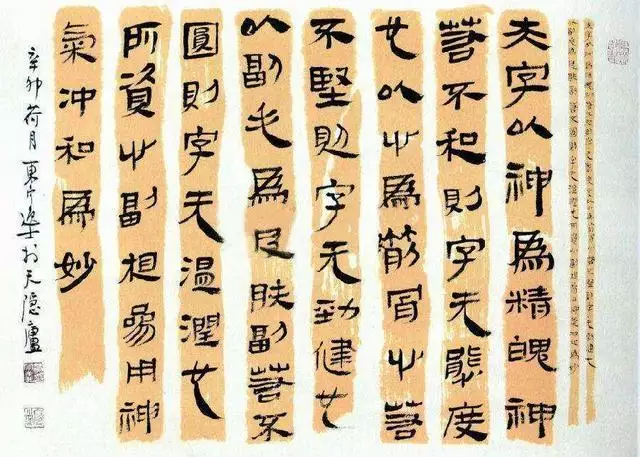 夫字以神為精魄神
若不和則字无態度
也以心為筋骨心若
不堅則字无勁健也
以副毛為皮膚副若不
圓則字无溫潤也
所資心副相參用神
氣冲和為妙
辛卯荷月 於天隱廬